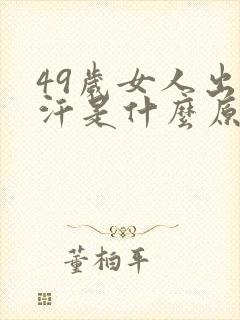 49歲女人出
汗是什麼原
董柏年